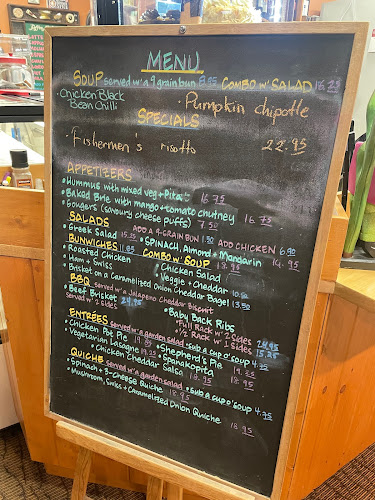 MENU
SOUP served w' a 9 grain bun 8.95 COMBO w' SALAD 18.25
• Chicken Black Bean Chilli
• Pumpkin chipotle
SPECIALS
• Fishermen's risotto 22.95
APPETIZERS
• Hummus with mixed veg + Pita 16.75
• Baked Brie with mango + tomato chutney 16.75
• Gougers (savoury cheese puffs) 7.50
SALADS ADD A 9-GRAIN BUN 1.50 ADD CHICKEN 6.90
• Greek Salad 15.25 • SPINACH, Almond + Mandarin 14.95
BUNWICHES 11.95 COMBO w' SOUP 18.95
• Roasted Chicken • Chicken Salad
• Ham + Swiss • Veggie + Cheddar 10.50
Brisket on a Caramelized Onion Cheddar Bagel 13.50
BBQ served w' a Jalapeno Cheddar Biscuit
• Beef Brisket 24.95 • Baby Back Ribs
served w' 2 sides • Full Rack w' 2 Sides
• 1/2 Rack w' 1 Sides 15.25
ENTRÉES served w' a garden salad • sub a cup o' soup 4.75
• Chicken Pot Pie • Shepherd's Pie
• Vegetarian Lasagne 19.25 • Spanakopita
• Chicken Cheddar Salsa 18.95
QUICHE served w' a garden salad • sub a cup o' soup 4.75
• Spinach + 3-cheese Quiche 18.95
• Mushroom, Swiss + Caramelized Onion Quiche 18.95